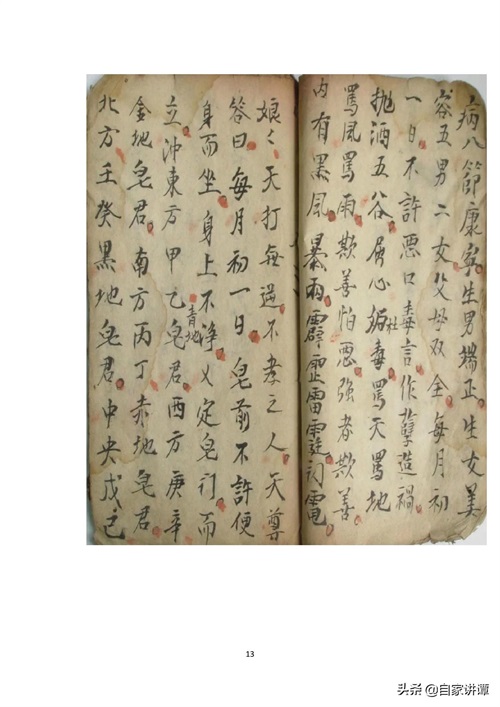 病八節康寧生男端正生女美
容五男二女父母双全每月初
一日不許惡口毒言作孽造禍
抛洒五谷居心毒罵天罵地
罵風罵雨欺善怕惡強者欺善
内有黑風暴雨霹雷閃電
娘々天打每遇不孝之人天尊
答曰每月初一日皂前不許便
身而坐身上不淨义定皂行而
立沖東方甲乙青地皂君西方庚辛
金地皂君南方丙丁赤地皂君
北方壬癸黑地皂君中央戊己
13
头条 @自家讲谭